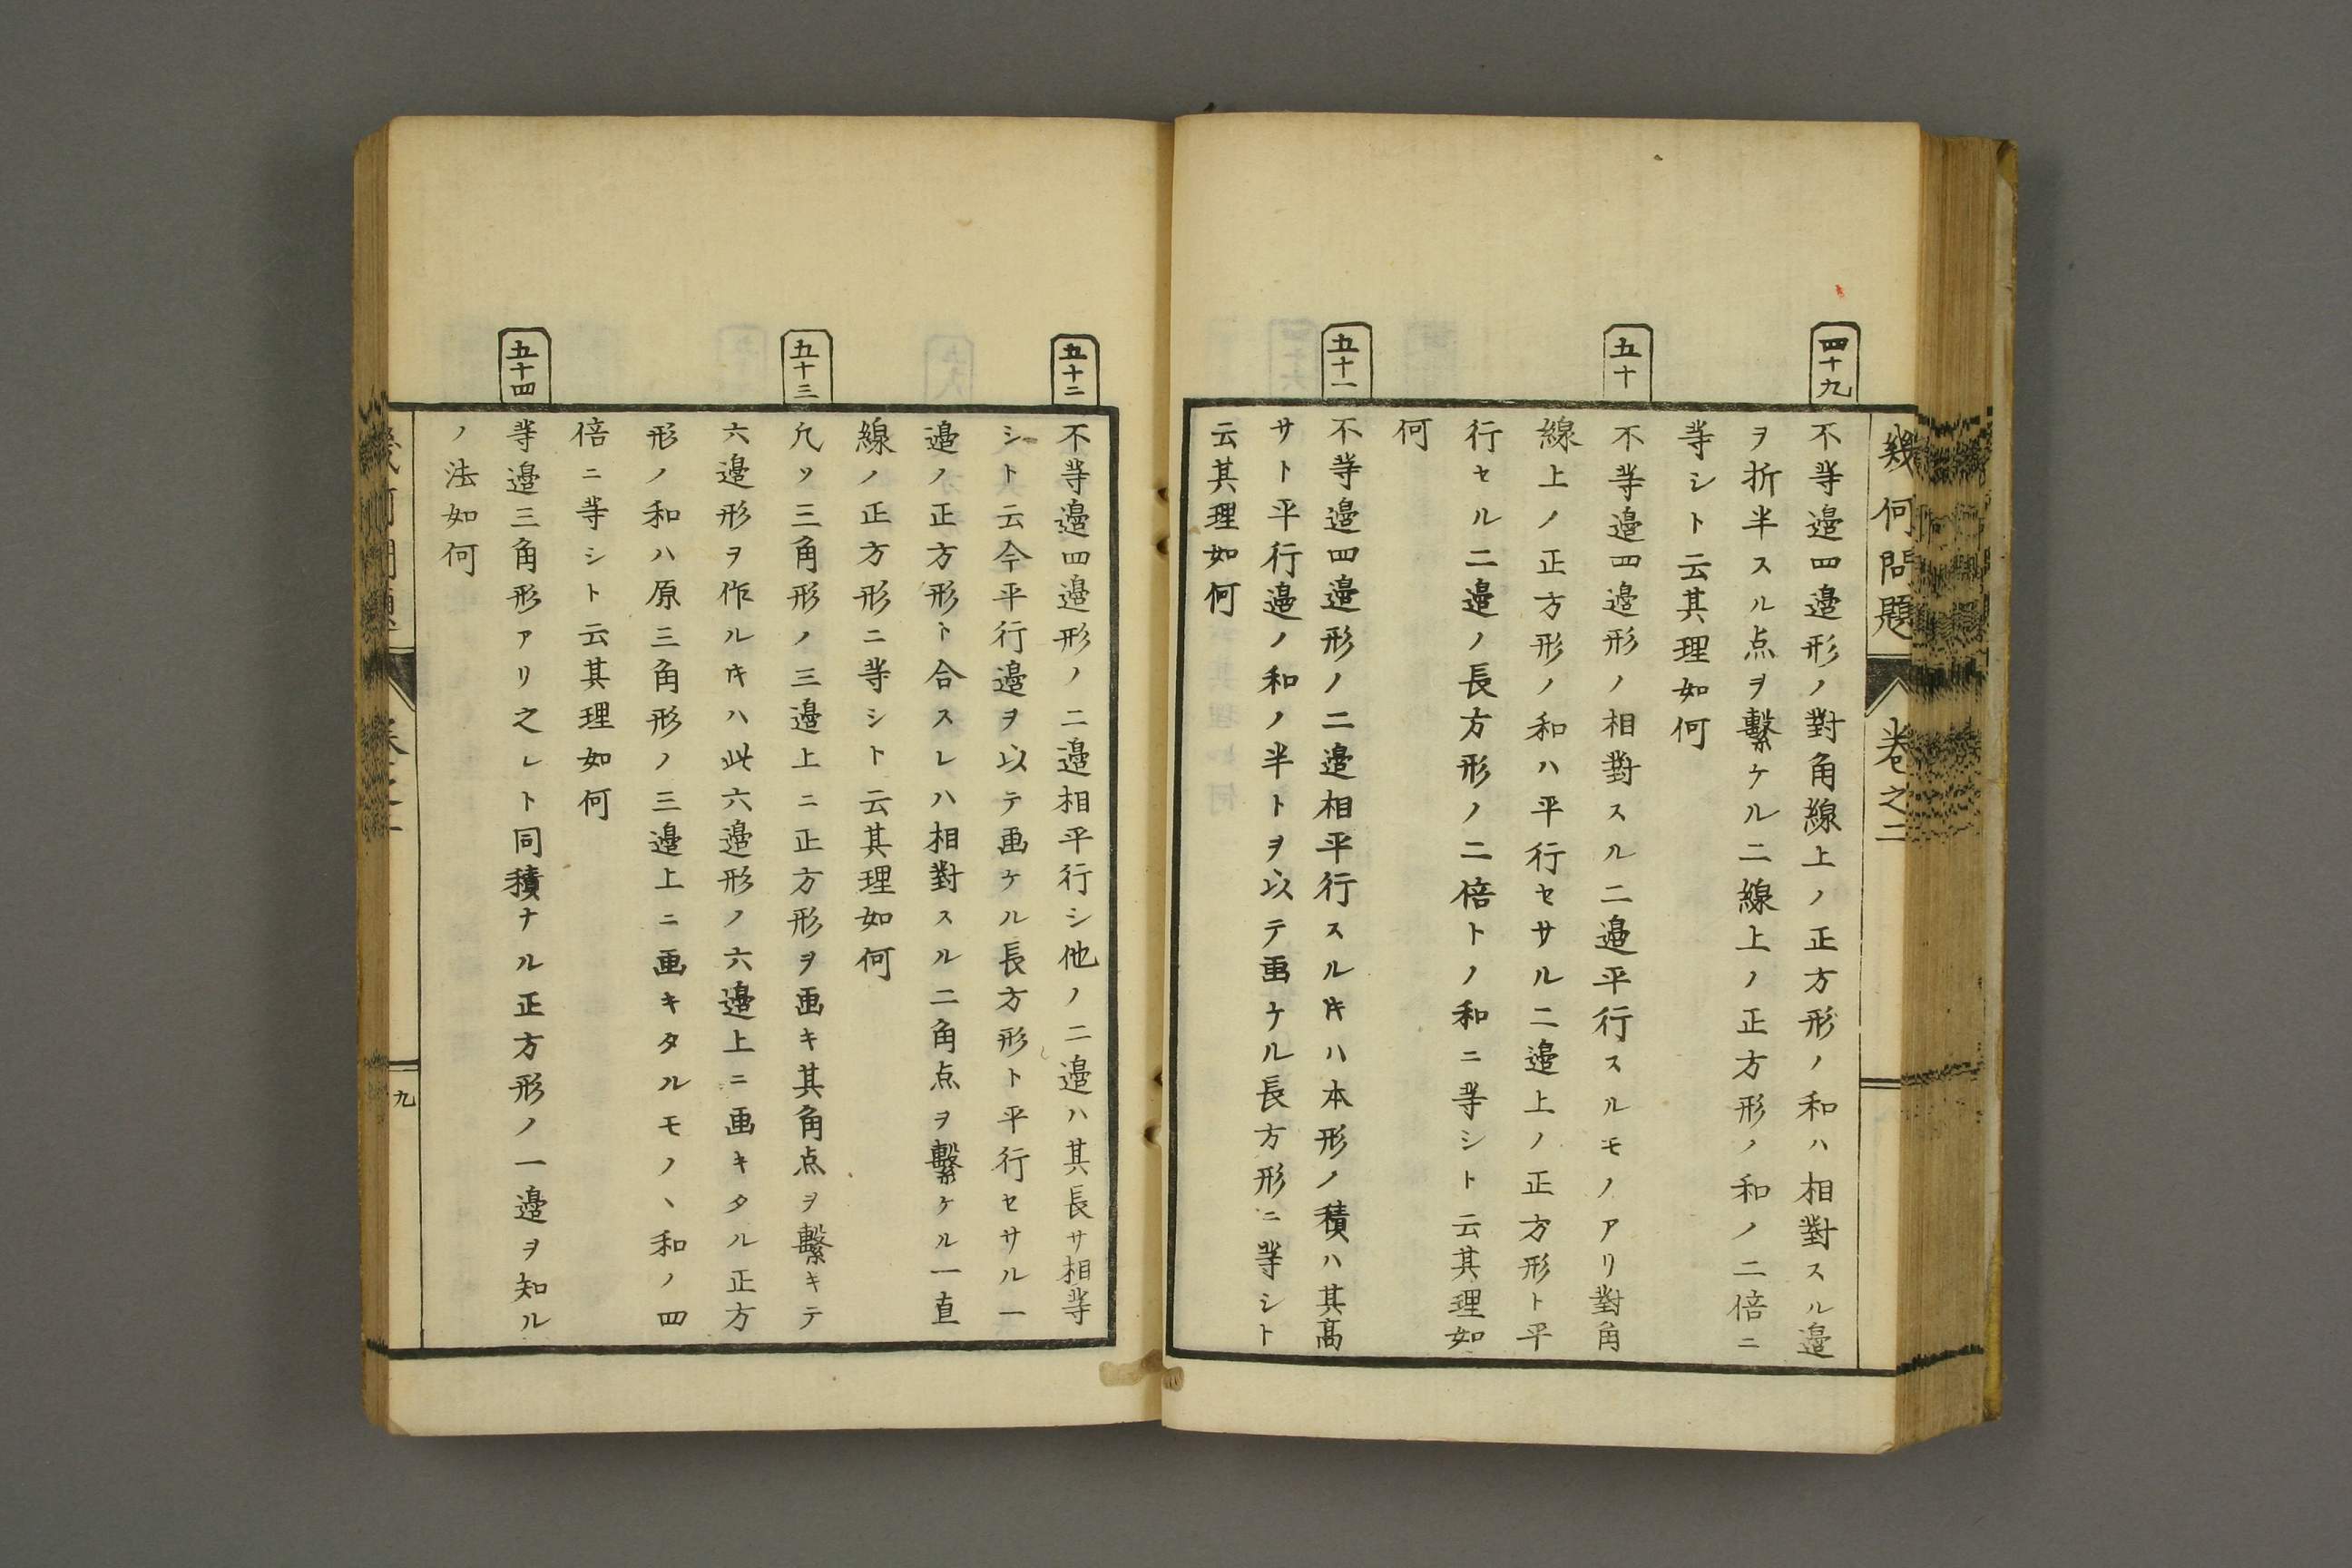 幾何問題
卷之二
四十九
不等邉四邉形ノ對角線上ノ正方形ノ和ハ相對スル邉
ヲ折半スル点ヲ繫ケル二線上ノ正方形ノ和ノ二倍ニ
等シト云其理如何
五十
不等邉四邉形ノ相對スル二邉平行スルモノアリ對角
線上ノ正方形ノ和ハ平行セサル二邉上ノ正方形ト平
行セル二邉ノ長方形ノ二倍トノ和ニ等シト云其理如
何
五十一
不等邉四邉形ノ二邉相平行スル𪜈ハ本形ノ積ハ其高
サト平行邉ノ和ノ半トヲ以テ画ケル長方形ニ等シト
云其理如何
五十二
不等邉四邉形ノ二邉相平行シ他ノ二邉ハ其長サ相等
シト云今平行邉ヲ以テ画ケル長方形ト平行セサル一
邉ノ正方形ト合スレハ相對スル二角点ヲ繫ケル一直
線ノ正方形ニ等シト云其理如何
五十三
凢ソ三角形ノ三邉上ニ正方形ヲ画キ其角点ヲ繫キテ
六邉形ヲ作ル𪜈ハ此六邉形ノ六邉上ニ画キタル正方
形ノ和ハ原三角形ノ三邉上ニ画キタルモノヽ和ノ四
倍ニ等シト云其理如何
五十四
等邉三角形アリ之レト同積ナル正方形ノ一邉ヲ知ル
ノ法如何
九